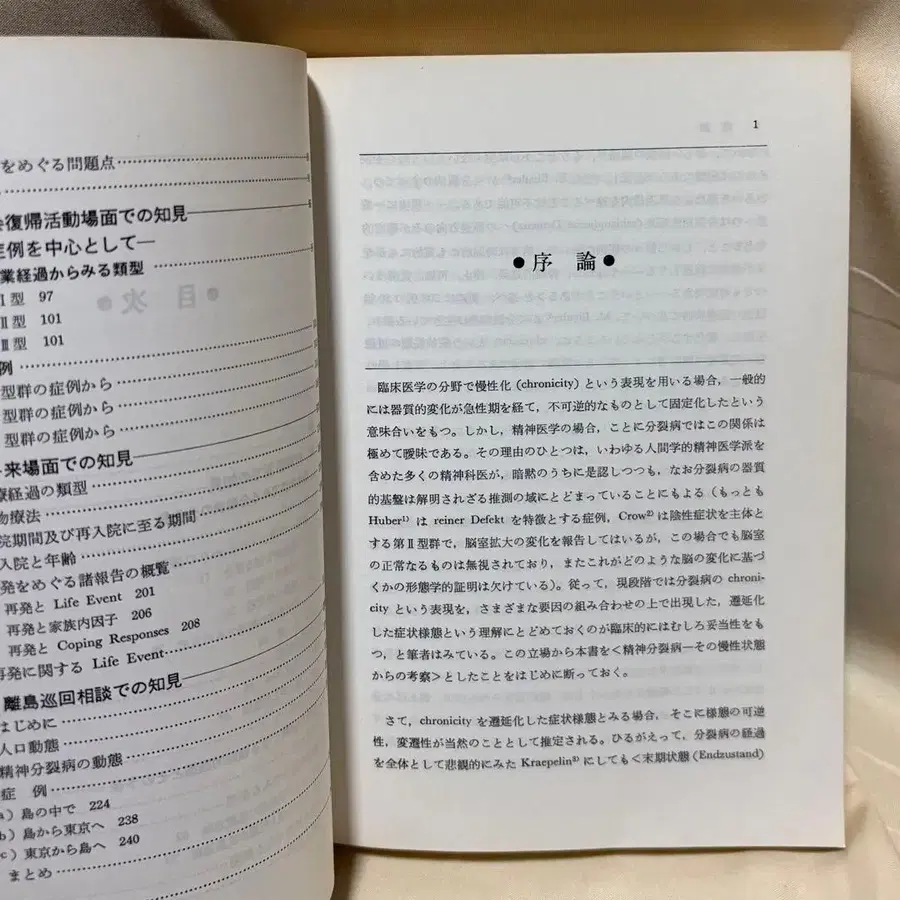 をめぐる問題点
復帰活動場面での知見
症例を中心として―
業経過からみる類型
Ⅰ型 97
Ⅱ型 101
Ⅲ型 101
例
型群の症例から
型群の症例から
型群の症例から
来場面での知見
療経過の類型
物療法
院期間及び再入院に至る期間
入院と年齢
発をめぐる諸報告の概覧
再発と Life Event 201
再発と家族内因子 206
再発と Coping Responses 208
再発に関する Life Event
離島巡回相談での知見
はじめに
人口動態
精神分裂病の動態
症 例
a) 島の中で 224
b) 島から東京へ 238
c) 東京から島へ 240
まとめ
1
●序 論●
臨床医学の分野で慢性化 (chronicity) という表現を用いる場合,一般的
には器質的変化が急性期を経て,不可逆的なものとして固定化したという
意味合いをもつ。しかし,精神医学の場合,ことに分裂病ではこの関係は
極めて曖昧である。その理由のひとつは,いわゆる人間学的精神医学派を
含めた多くの精神科医が,暗黙のうちに是認しつつも,なお分裂病の器質
的基盤は解明されざる推測の域にとどまっていることにもよる(もっとも
Huber¹⁾ は reiner Defekt を特徴とする症例,Crow²⁾ は陰性症状を主体と
する第Ⅱ型群で,脳室拡大の変化を報告してはいるが,この場合でも脳室
の正常なるものは無視されており,またこれがどのような脳の変化に基づ
くかの形態学的証明は欠けている)。従って,現段階では分裂病の chroni-
city という表現を,さまざまな要因の組み合わせの上で出現した,遷延化
した症状様態という理解にとどめておくのが臨床的にはむしろ妥当性をも
つ,と筆者はみている。この立場から本書を<精神分裂病―その慢性状態
からの考察>としたことをはじめに断っておく。
さて,chronicity を遷延化した症状様態とみる場合,そこに様態の可逆
性,変遷性が当然のこととして推定される。ひるがえって,分裂病の経過
を全体として悲観的にみた Kraepelin³⁾ にしても<末期状態 (Endzustand)